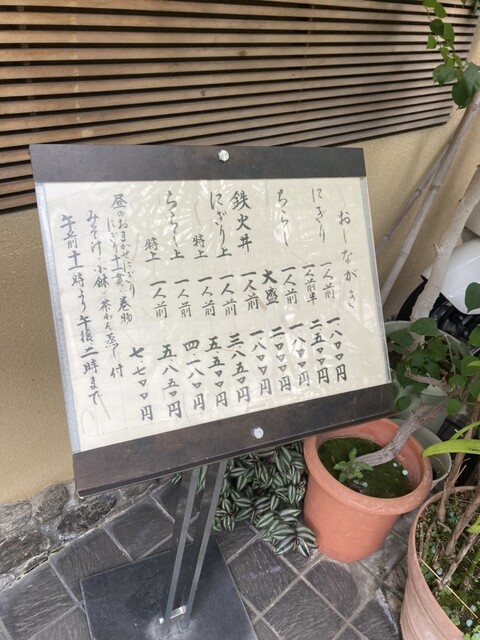 おしながき
にぎり 一人前 一、八〇〇円
一人前半 二、五〇〇円
ちらし 一人前 一、八〇〇円
大盛 二、〇〇〇円
鉄火丼 一人前 一、八〇〇円
にぎり上 一人前 三、八五〇円
特上 一人前 五、五〇〇円
ちらし上 一人前 四、一八〇円
特上 一人前 五、八五〇円
昼のおまかせにぎり 七、七〇〇円
にぎり十一貫、巻物
みそ汁・小鉢・茶わん蒸し付
午前十一時より午後二時まで